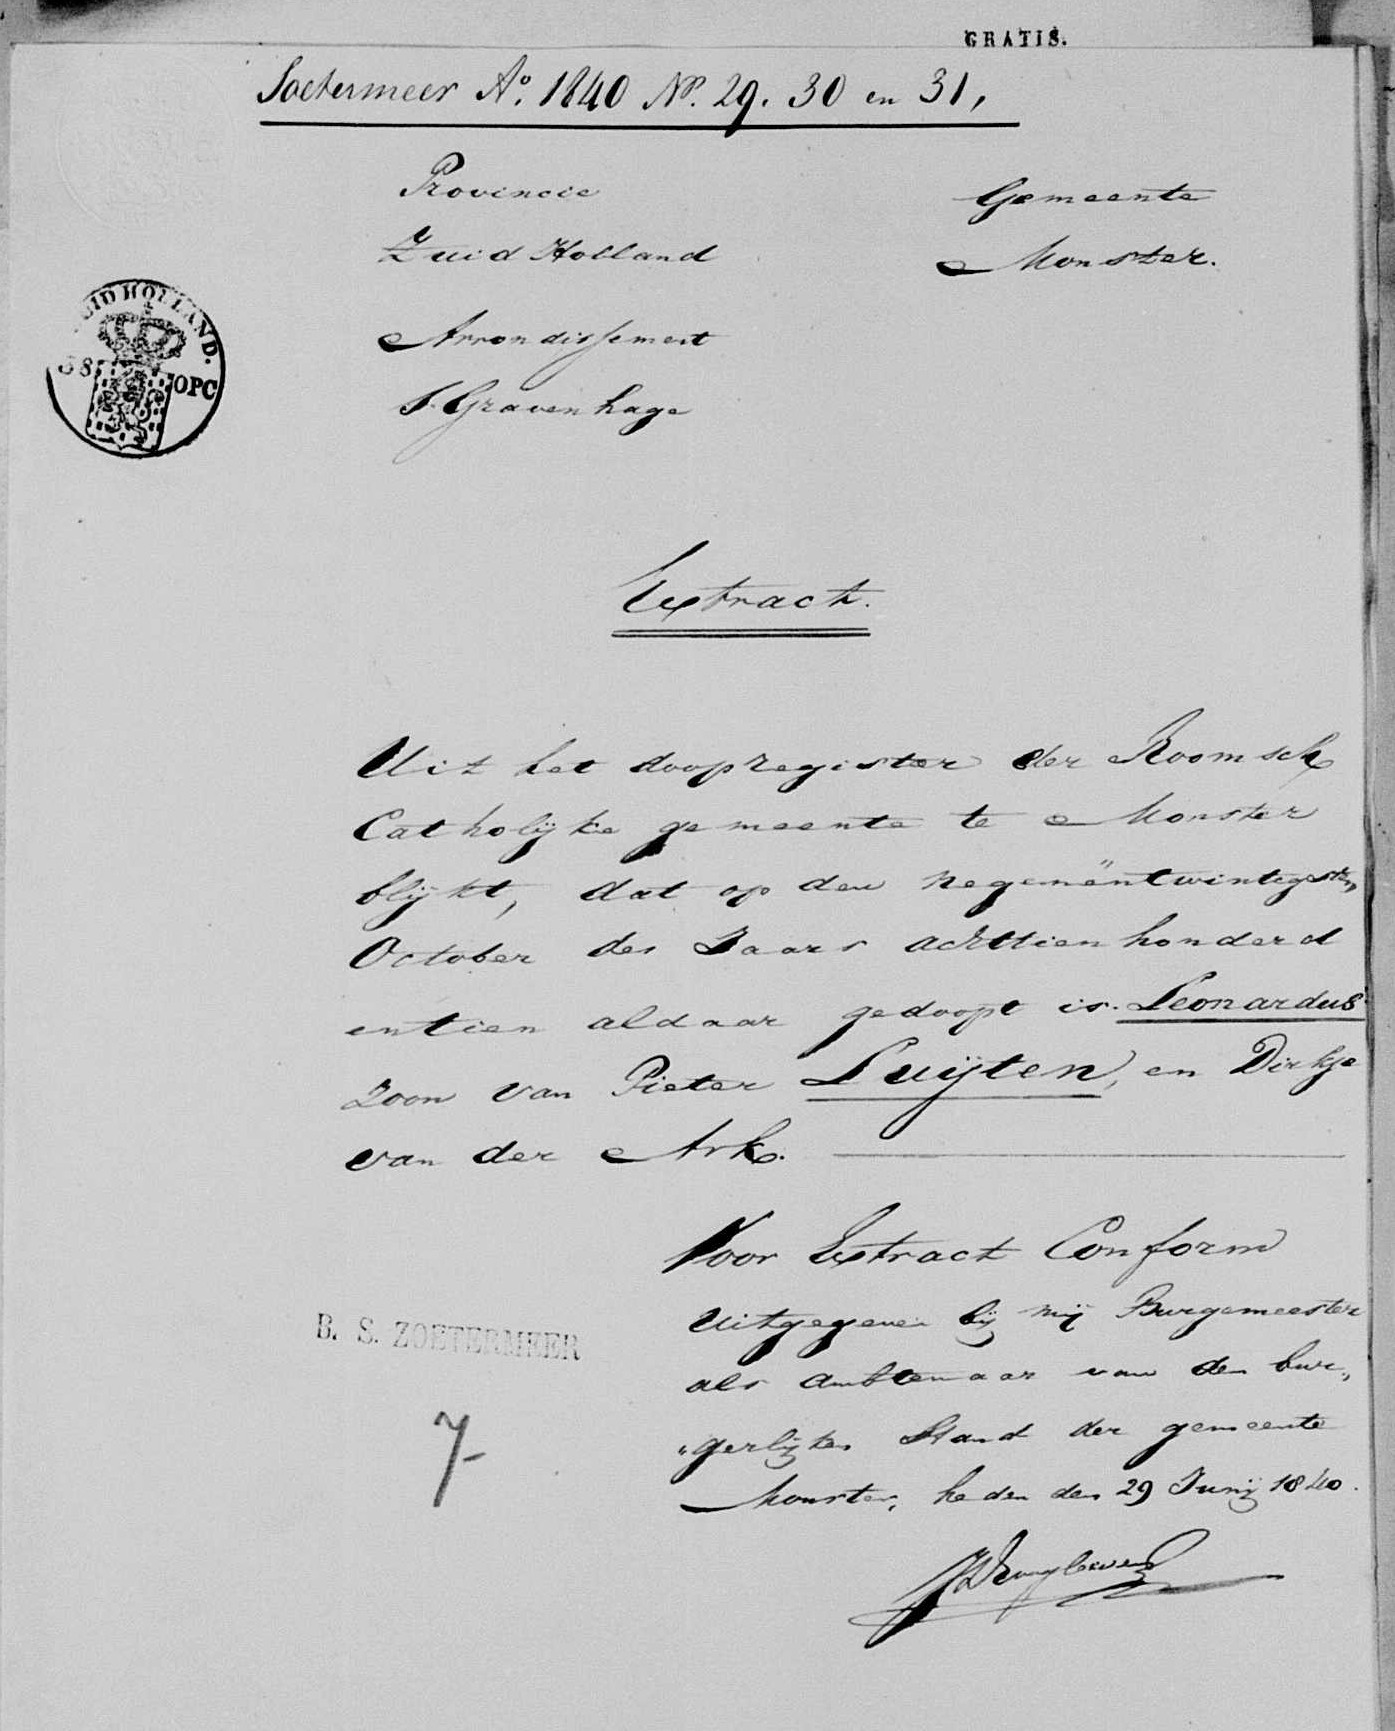 GRATIS.
Soetermeer Ao. 1840 No. 29. 30 en 31,
Provincie
Zuid Holland
Gemeente
Monster.
ZUID HOLLAND.
38 OPC
Arrondissement
S. Gravenhage
Extract.
Uit het doopregister der Roomsch
Catholijke gemeente te Monster
blijkt, dat op den negenëntwintigsten
October des Jaars achttien honderd
entien aldaar gedoopt is. Leonardus
zoon van Pieter Luijten, en Dirkje
van der Ark.
Voor Extract Conform
Uitgegeven bij mij Burgemeester
als Ambtenaar van den bur„
„gerlijken Stand der gemeente
Monster, heden den 29 Junij 1840.
B. S. ZOETERMEER
7